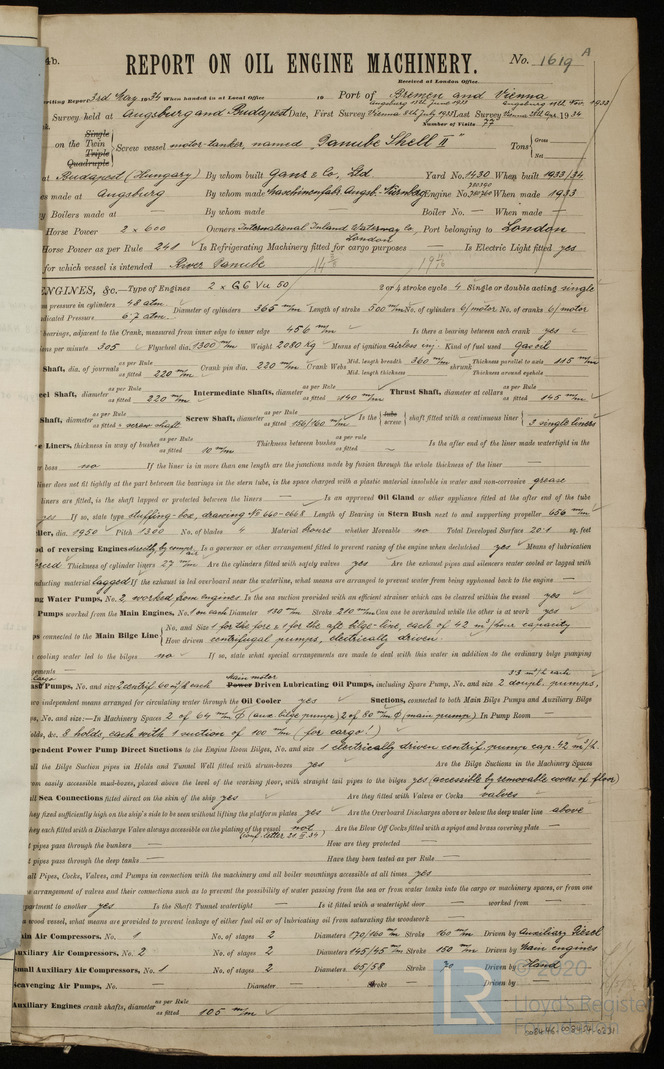 4b.
REPORT ON OIL ENGINE MACHINERY.
No. 1619 A
Received at London Office
writing Report 3rd May 1934 When handed in at Local Office 19 Port of Bremen and Vienna
Augsburg 13th June 1933 Augsburg 11th Nov. 1933
Survey held at Augsburg and Budapest Date, First Survey Vienna 8th July 1933 Last Survey Vienna Apr. 1934
Number of Visits 77
on the Single Twin Triple Quadruple Screw vessel motor-tanker, named "Danube Shell II" Tons Gross Net
at Budapest (Hungary) By whom built Ganz & Co, Ltd Yard No. 1430 When built 1933/34
es made at Augsburg By whom made Maschinenfabr. Augsb.-Nürnberg Engine No. When made 1933
Boilers made at — By whom made — Boiler No. — When made —
Horse Power 2 x 600 Owners International Inland Waterway Co. London Port belonging to London
Horse Power as per Rule 241 Is Refrigerating Machinery fitted for cargo purposes — Is Electric Light fitted yes
for which vessel is intended River Danube
ENGINES, &c.—Type of Engines 2 x G 6 Vu 50 2 or 4 stroke cycle 4 Single or double acting single
m pressure in cylinders 48 atm. Diameter of cylinders 365 m/m Length of stroke 500 m/m No. of cylinders 6/motor No. of cranks 6/motor
ndicated Pressure 6.7 atm.
bearings, adjacent to the Crank, measured from inner edge to inner edge 456 m/m Is there a bearing between each crank yes
ons per minute 305 Flywheel dia. 1300 m/m Weight 2080 kg Means of ignition airless inj. Kind of fuel used gasoil
Shaft, dia. of journals as per Rule as fitted 220 m/m Crank pin dia. 220 m/m Crank Webs Mid. length breadth 360 m/m Mid. length thickness shrunk Thickness parallel to axis 115 m/m Thickness around eyehole
eel Shaft, diameter as per Rule as fitted 220 m/m Intermediate Shafts, diameter as per Rule as fitted 140 m/m Thrust Shaft, diameter at collars as per Rule as fitted 145 m/m
Shaft, diameter as per Rule as fitted = screw shaft Screw Shaft, diameter as per Rule as fitted 156/160 m/m Is the tube screw shaft fitted with a continuous liner 3 single liners
e Liners, thickness in way of bushes as per Rule as fitted 10 m/m Thickness between bushes as per rule as fitted — Is the after end of the liner made watertight in the
r boss no If the liner is in more than one length are the junctions made by fusion through the whole thickness of the liner —
liner does not fit tightly at the part between the bearings in the stern tube, is the space charged with a plastic material insoluble in water and non-corrosive grease
liners are fitted, is the shaft lapped or protected between the liners — Is an approved Oil Gland or other appliance fitted at the after end of the tube
yes If so, state type stuffing-box, drawing No 640-0668 Length of Bearing in Stern Bush next to and supporting propeller 656 m/m
eller, dia. 1950 Pitch 1300 No. of blades 4 Material bronze whether Moveable no Total Developed Surface 20.1 sq. feet
od of reversing Engines directly by compr. air Is a governor or other arrangement fitted to prevent racing of the engine when declutched yes Means of lubrication
forced Thickness of cylinder liners 27 m/m Are the cylinders fitted with safety valves yes Are the exhaust pipes and silencers water cooled or lagged with
nducting material lagged If the exhaust is led overboard near the waterline, what means are arranged to prevent water from being syphoned back to the engine —
ing Water Pumps, No. 2, worked from engines. Is the sea suction provided with an efficient strainer which can be cleared within the vessel yes
Pumps worked from the Main Engines, No. 1 on each Diameter 180 m/m Stroke 210 m/m Can one be overhauled while the other is at work yes
ps connected to the Main Bilge Line No. and Size 1 for the fore & 1 for the aft bilge-line, each of 42 m³/hour capacity
How driven centrifugal pumps, electrically driven
cooling water led to the bilges no If so, state what special arrangements are made to deal with this water in addition to the ordinary bilge pumping
gements —
Pumps, No. and size 2 centrif. 60 m³/h each Main motor Power Driven Lubricating Oil Pumps, including Spare Pump, No. and size 2 doupl. pumps, 3.3 m³/h each
wo independent means arranged for circulating water through the Oil Cooler yes Suctions, connected to both Main Bilge Pumps and Auxiliary Bilge
ps, No. and size:—In Machinery Spaces 2 of 64 m/m Φ (aux. bilge pump) 2 of 80 m/m Φ (main pump) In Pump Room —
olds, &c. 8 holds, each with 1 suction of 100 m/m (for cargo!)
ependent Power Pump Direct Suctions to the Engine Room Bilges, No. and size 1 electrically driven centrif. pump cap. 42 m³/h.
all the Bilge Suction pipes in Holds and Tunnel Well fitted with strum-boxes yes Are the Bilge Suctions in the Machinery Spaces
rom easily accessible mud-boxes, placed above the level of the working floor, with straight tail pipes to the bilges yes (accessible by removable covers of floor)
all Sea Connections fitted direct on the skin of the ship yes Are they fitted with Valves or Cocks valves
they fixed sufficiently high on the ship's side to be seen without lifting the platform plates yes Are the Overboard Discharges above or below the deep water line above
they each fitted with a Discharge Valve always accessible on the plating of the vessel not (conf. letter 21.II.34) Are the Blow Off Cocks fitted with a spigot and brass covering plate —
t pipes pass through the bunkers — How are they protected —
t pipes pass through the deep tanks — Have they been tested as per Rule —
all Pipes, Cocks, Valves, and Pumps in connection with the machinery and all boiler mountings accessible at all times yes
e arrangement of valves and their connections such as to prevent the possibility of water passing from the sea or from water tanks into the cargo or machinery spaces, or from one
partment to another yes Is the Shaft Tunnel watertight — Is it fitted with a watertight door — worked from —
a wood vessel, what means are provided to prevent leakage of either fuel oil or of lubricating oil from saturating the woodwork
ain Air Compressors, No. 1 No. of stages 2 Diameters 170/160 m/m Stroke 160 m/m Driven by Auxiliary Diesel
uxiliary Air Compressors, No. 2 No. of stages 2 Diameters 145/45 m/m Stroke 150 m/m Driven by Main engines
mall Auxiliary Air Compressors, No. 1 No. of stages 2 Diameters 65/58 Stroke 70 Driven by Hand
cavenging Air Pumps, No. — Diameter — Stroke — Driven by —
Auxiliary Engines crank shafts, diameter as per Rule as fitted 105 m/m
© 2020
Lloyd's Register
LR